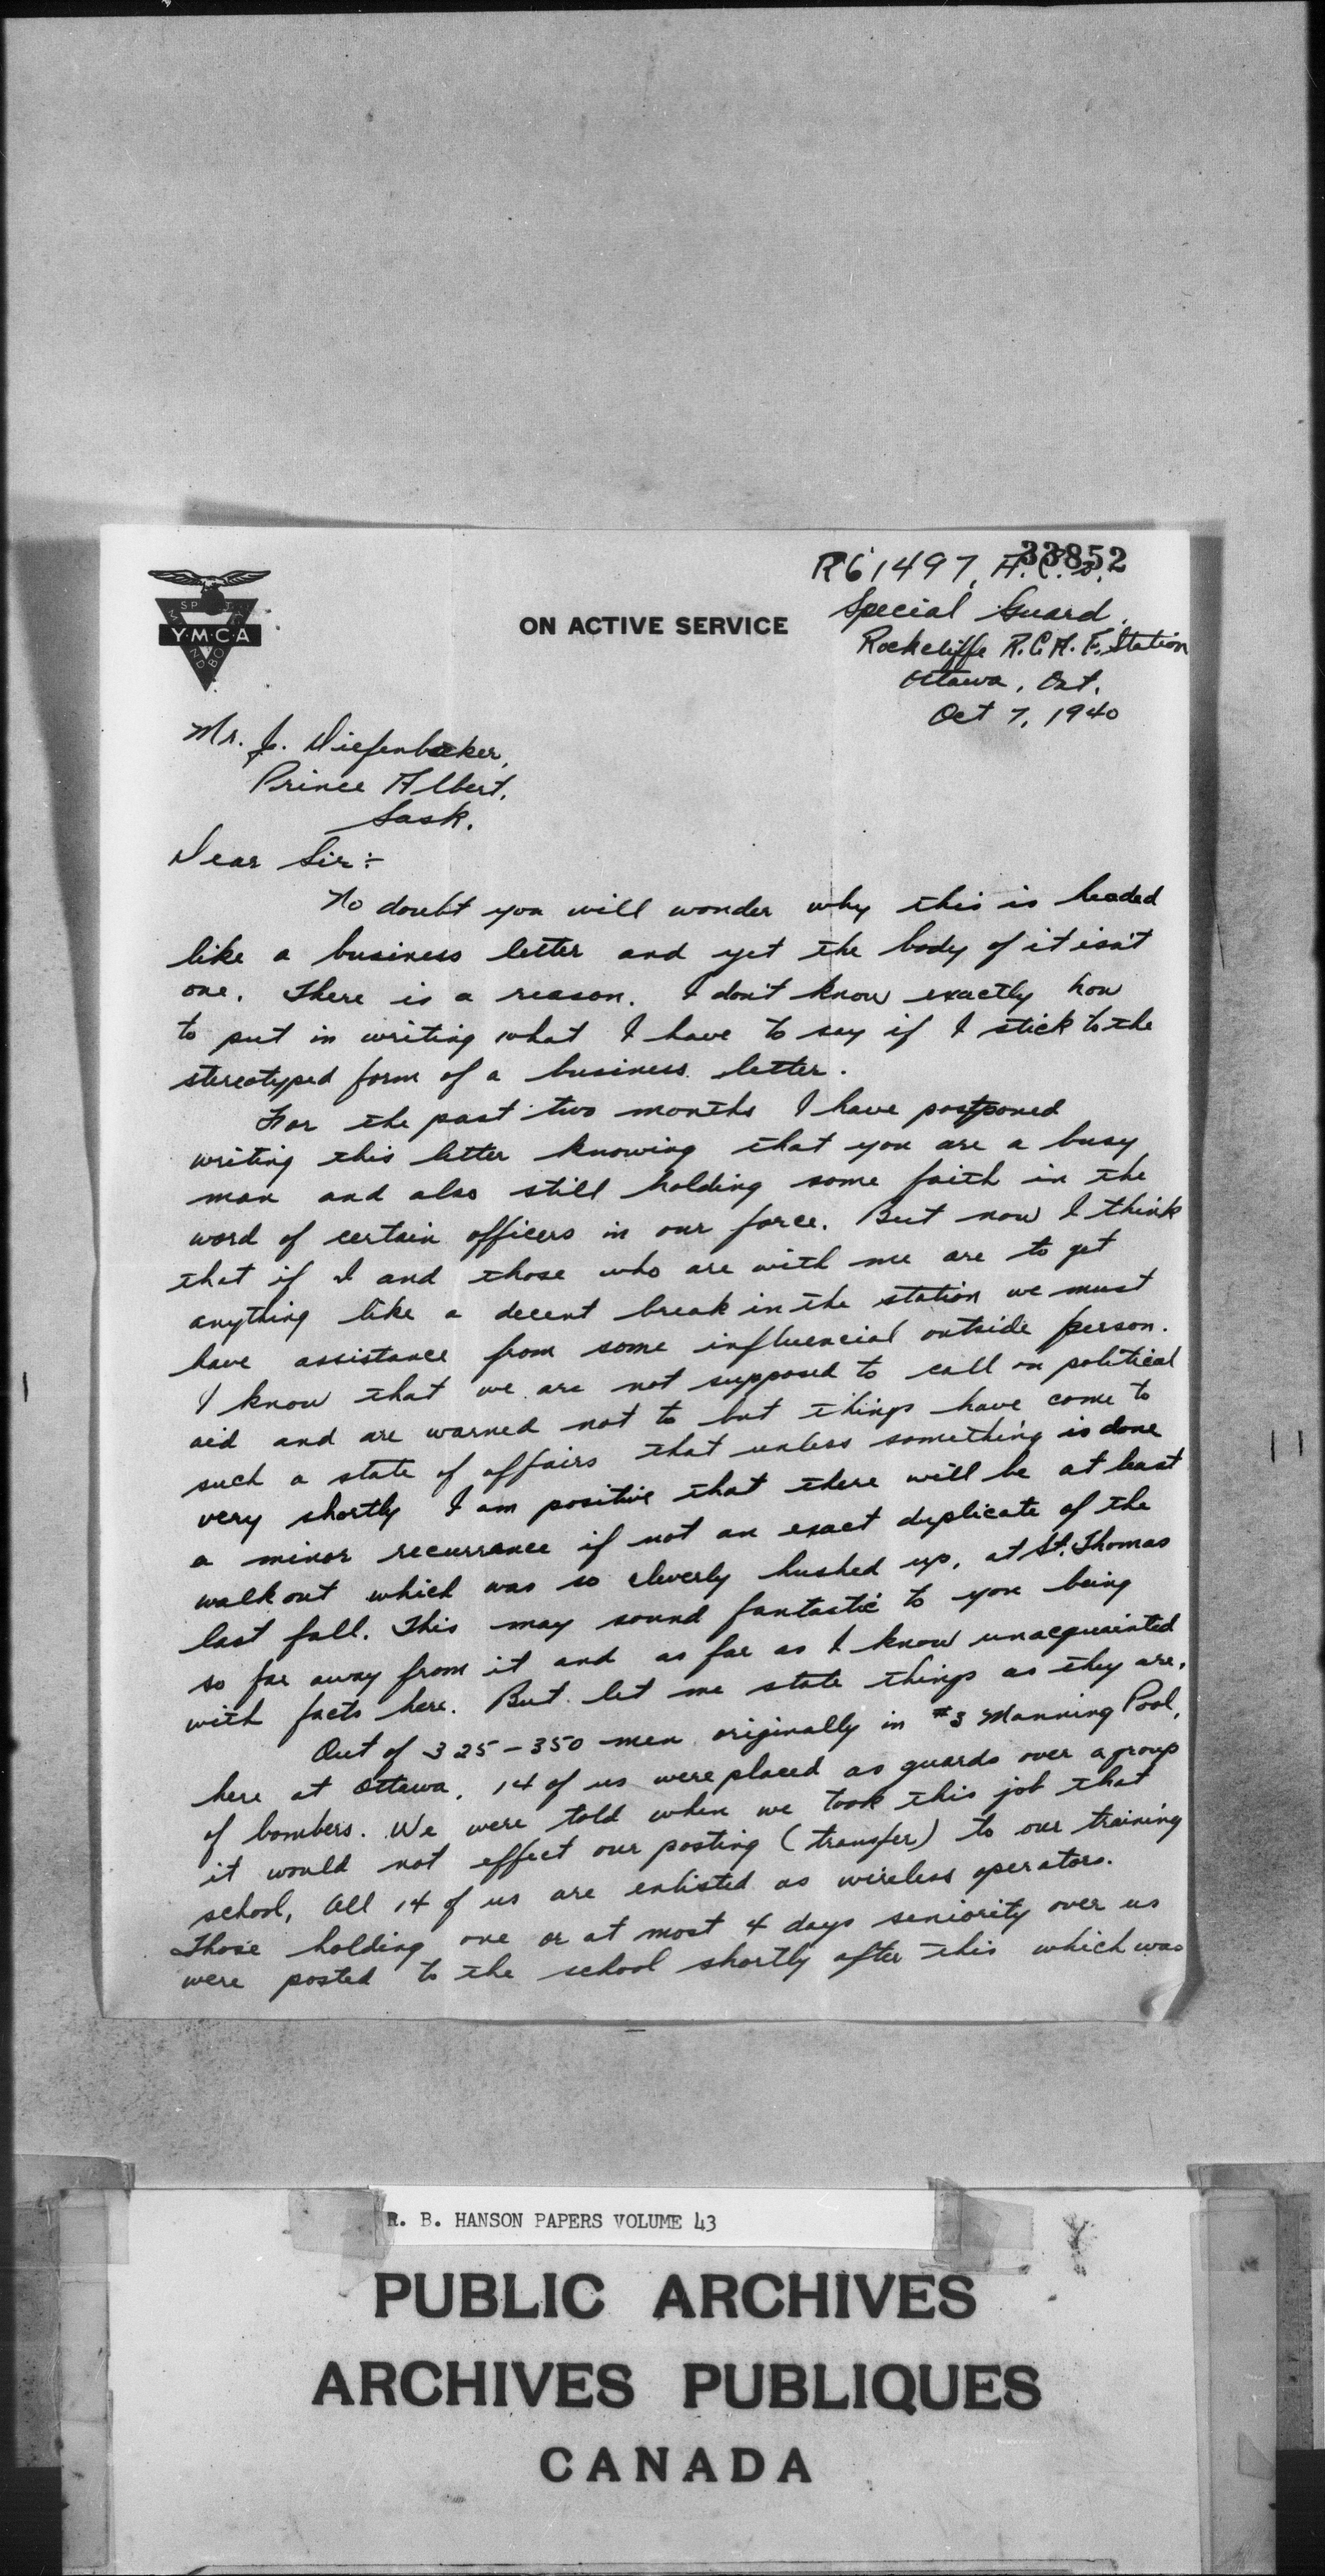 33852
R61497, A.C.2.
Special Guard,
Rockcliffe R.C.A.F. Station
Ottawa, Ont.
Oct 7, 1940
SPIRIT
Y·M·C·A
MIND
BODY
ON ACTIVE SERVICE
Mr. J. Diefenbaker,
Prince Albert,
Sask.
Dear Sir:-
No doubt you will wonder why this is headed
like a business letter and yet the body of it isn't
one. There is a reason. I don't know exactly how
to put in writing what I have to say if I stick to the
stereotyped form of a business letter.
For the past two months I have postponed
writing this letter knowing that you are a busy
man and also still holding some faith in the
word of certain officers in our force. But now I think
that if I and those who are with me are to get
anything like a decent break in the station we must
have assistance from some influencial outside person.
I know that we are not supposed to call on political
aid and are warned not to but things have come to
such a state of affairs that unless something is done
very shortly I am positive that there will be at least
a minor recurrance if not an exact duplicate of the
walk out which was so cleverly hushed up, at St. Thomas
last fall. This may sound fantastic to you being
so far away from it and as far as I know unacquainted
with facts here. But let me state things as they are.
Out of 325-350 men originally in #3 Manning Pool,
here at Ottawa, 14 of us were placed as guards over a group
of bombers. We were told when we took this job that
it would not effect our posting (transfer) to our training
school, All 14 of us are enlisted as wireless operators.
Those holding one or at most 4 days seniority over us
were posted to the school shortly after this which was
R. B. HANSON PAPERS VOLUME 43
PUBLIC ARCHIVES
ARCHIVES PUBLIQUES
CANADA